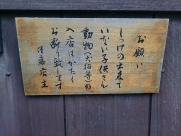 お願い
しつけの出来て
いない子供さん
動物(犬猫等)の
入店はかたく
お断り致します
店主